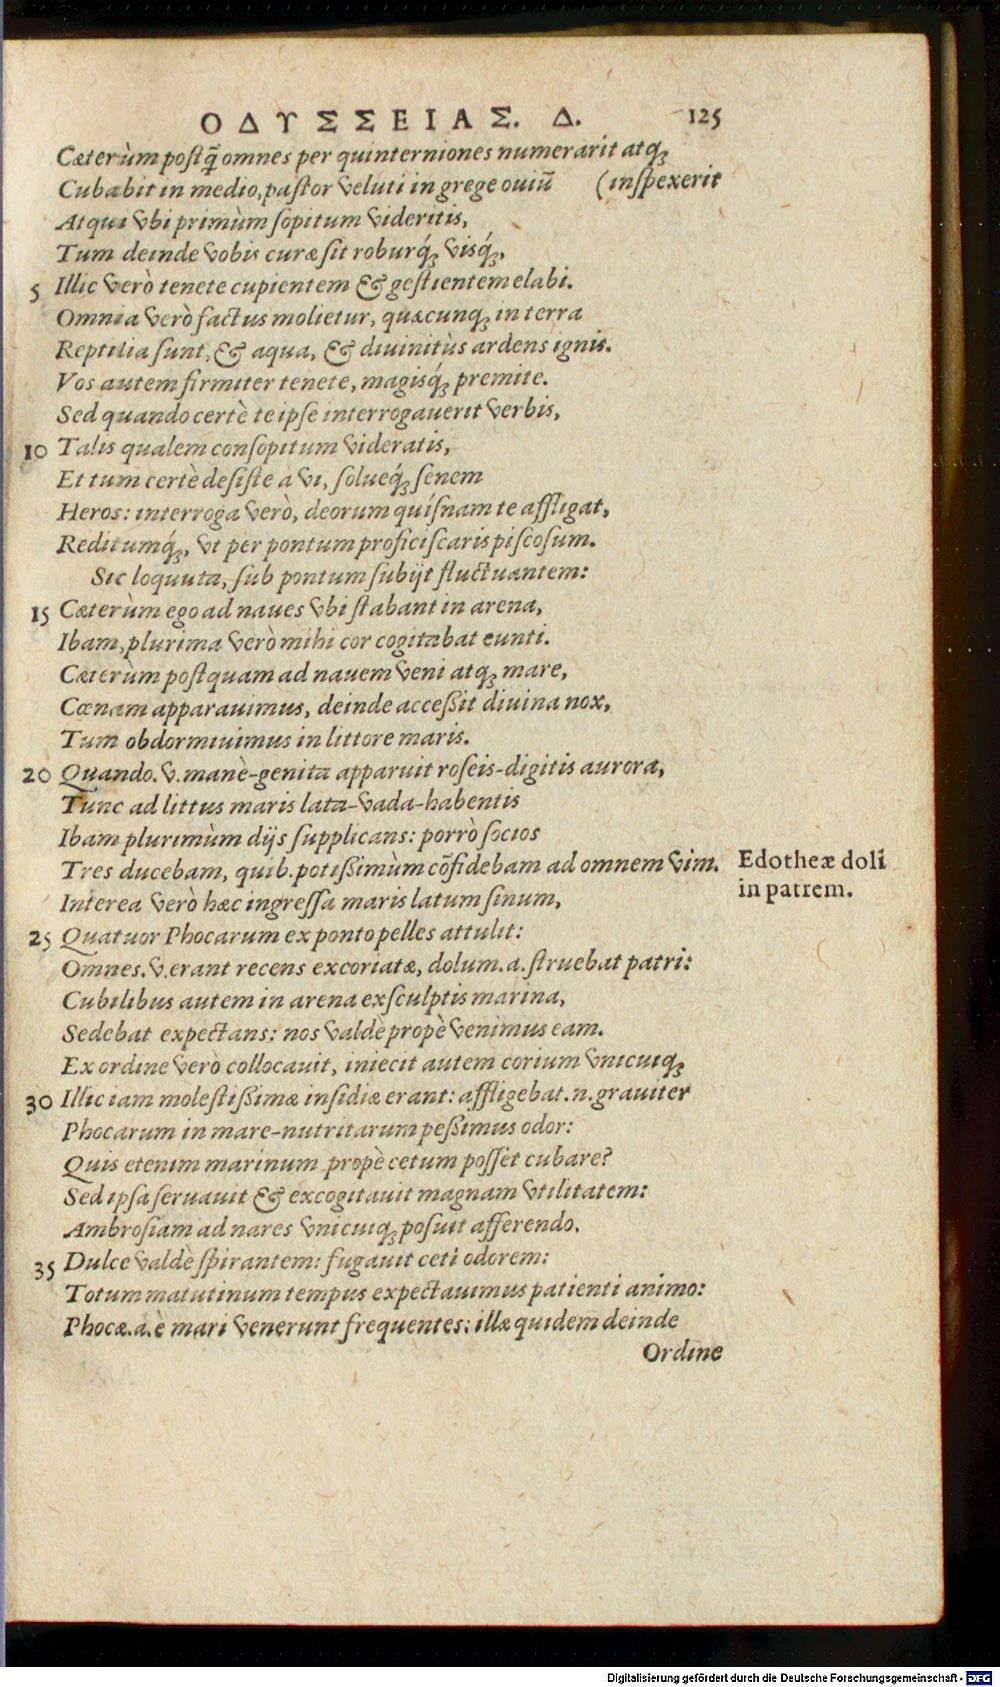 ΟΔΥΣΣΕΙΑΣ. Δ. 125
Cæterùm postq̃ omnes per quinterniones numerarit atq;
Cubabit in medio, pastor veluti in grege ouiũ (inspexerit
Atqui vbi primùm sopitum videritis,
Tum deinde vobis curæ sit roburq́; visq́;,
5 Illic verò tenete cupientem & gestientem elabi.
Omnia verò factus molietur, quæcunq; in terra
Reptilia sunt, & aqua, & diuinitùs ardens ignis.
Vos autem firmiter tenete, magisq́; premite.
Sed quando certè te ipse interrogauerit verbis,
10 Talis qualem consopitum videratis,
Et tum certè desiste a vi, solueq́; senem
Heros: interroga verò, deorum quísnam te affligat,
Reditumq́;, vt per pontum proficiscaris piscosum.
Sic loquuta, sub pontum subijt fluctuantem:
15 Cæterùm ego ad naues vbi stabant in arena,
Ibam, plurima verò mihi cor cogitabat eunti.
Cæterùm postquam ad nauem veni atq; mare,
Cœnam apparauimus, deinde accessit diuina nox,
Tum obdormiuimus in littore maris.
20 Quando. v. manè-genita apparuit roseis-digitis aurora,
Tunc ad littus maris lata-vada-habentis
Ibam plurimùm dijs supplicans: porrò socios
Tres ducebam, quib. potissimùm cõfidebam ad omnem vim.
Edotheæ doli
in patrem.
Interea verò hæc ingressa maris latum sinum,
25 Quatuor Phocarum ex ponto pelles attulit:
Omnes. v. erant recens excoriatæ, dolum. a. struebat patri:
Cubilibus autem in arena exsculptis marina,
Sedebat expectans: nos valdè propè venimus eam.
Ex ordine verò collocauit, iniecit autem corium vnicuiq;
30 Illic iam molestissimæ insidiæ erant: affligebat. n. grauiter
Phocarum in mare-nutritarum pessimus odor:
Quis etenim marinum propè cetum posset cubare?
Sed ipsa seruauit & excogitauit magnam vtilitatem:
Ambrosiam ad nares vnicuiq; posuit afferendo.
35 Dulce valdè spirantem: fugauit ceti odorem:
Totum matutinum tempus expectauimus patienti animo:
Phocæ. a. è mari venerunt frequentes: illæ quidem deinde
Ordine
Digitalisierung gefördert durch die Deutsche Forschungsgemeinschaft - DFG